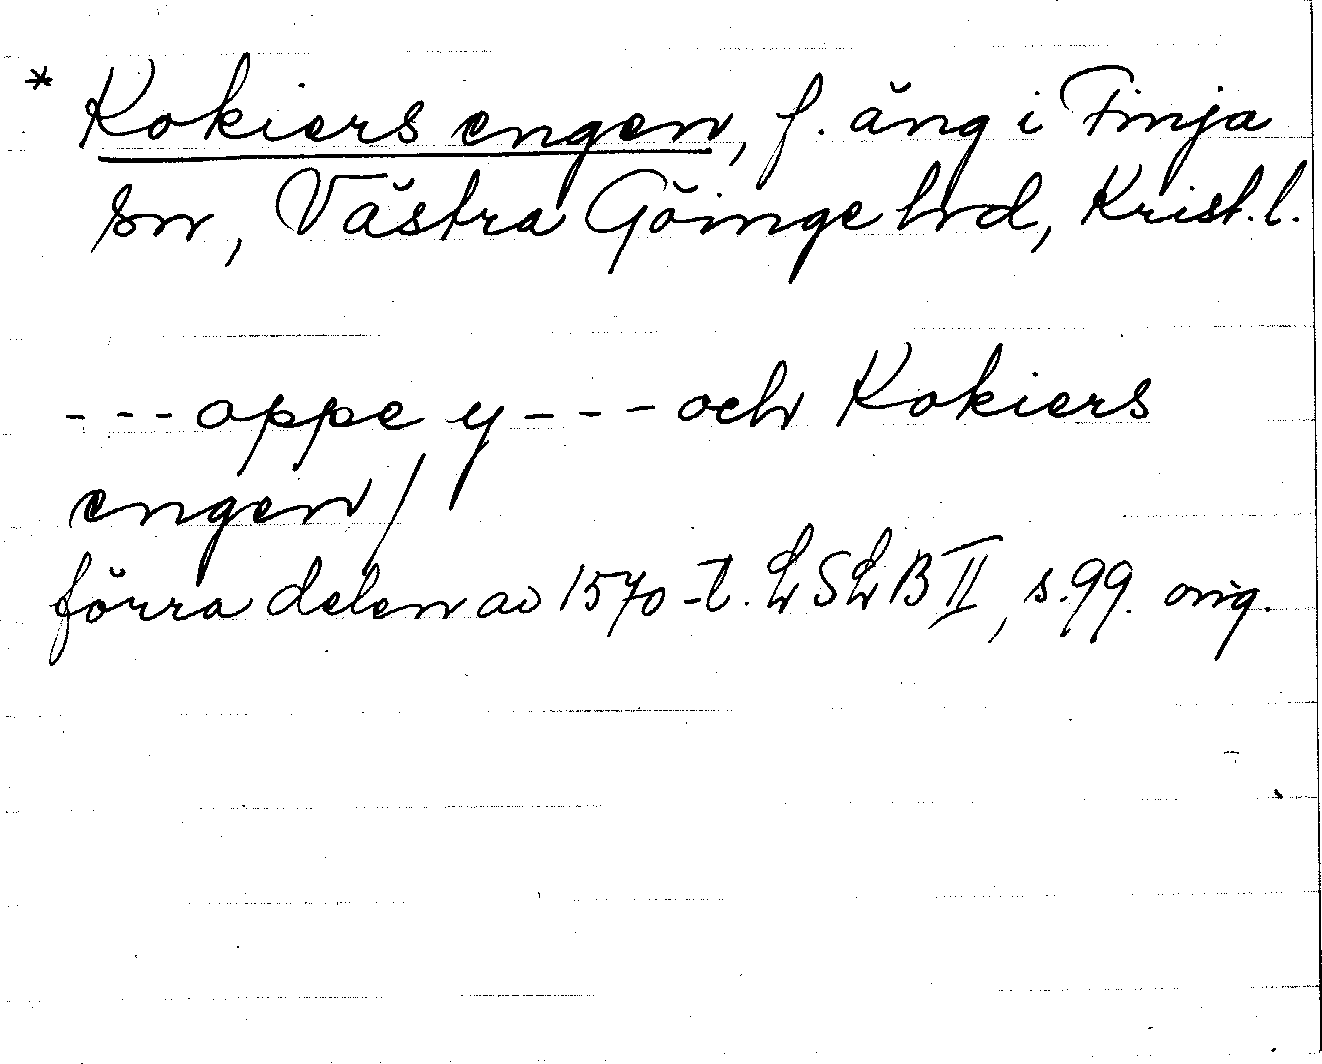 * Kokiers engen, f. äng i Finja
sn, Västra Göinge hrd, Krist. l.
- - - oppe y - - - och Kokiers
engen /
förra delen av 1570-t. LSLB II, s. 99. orig.